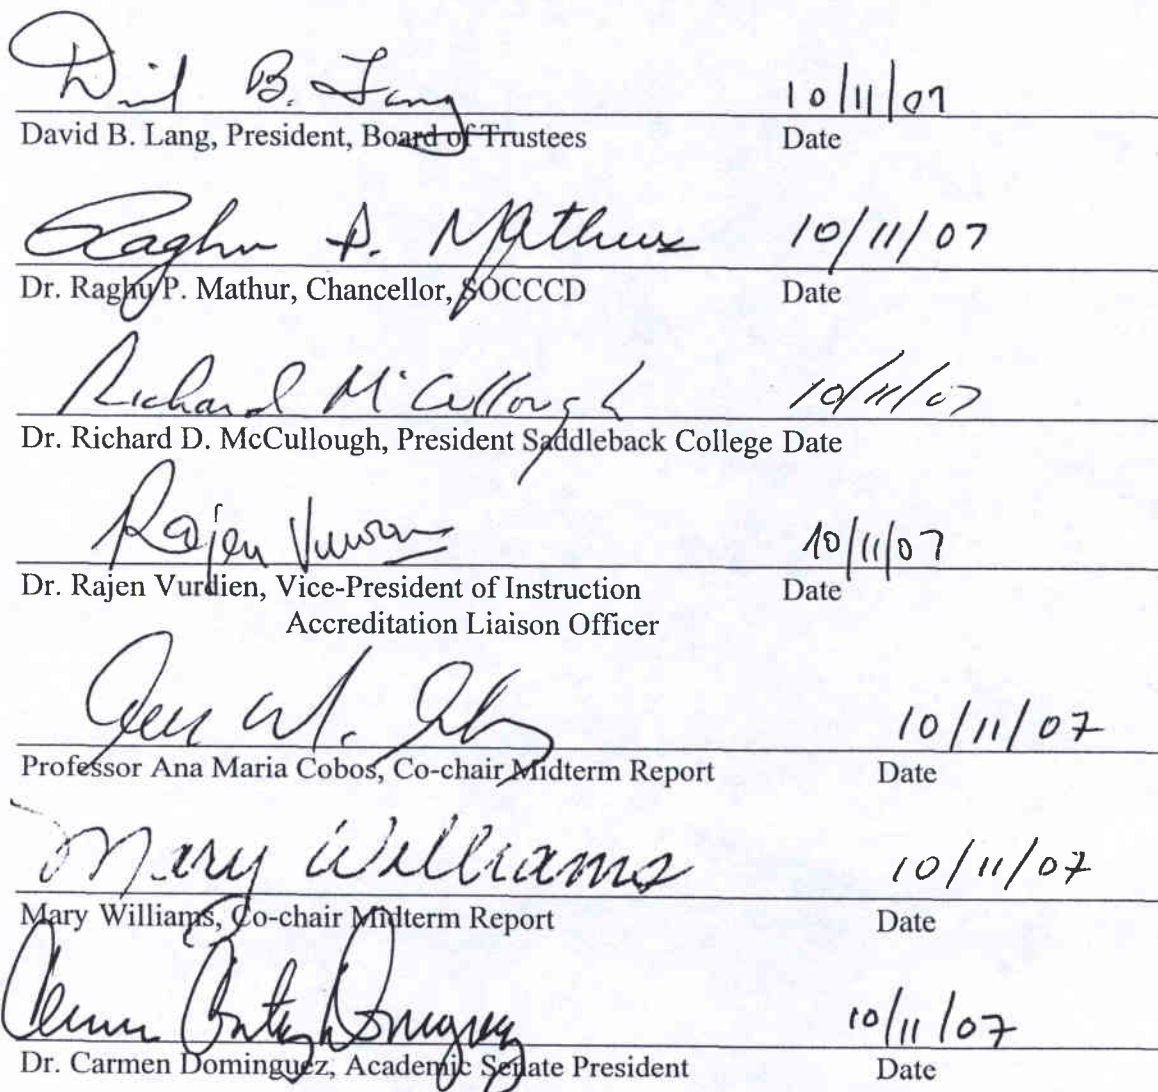 David B. Lang 10/11/07
David B. Lang, President, Board of Trustees Date
Raghu P. Mathur 10/11/07
Dr. Raghu P. Mathur, Chancellor, SOCCCD Date
Richard McCullough 10/11/07
Dr. Richard D. McCullough, President Saddleback College Date
Rajen 10/11/07
Dr. Rajen Vurdien, Vice-President of Instruction Date
Accreditation Liaison Officer
10/11/07
Professor Ana Maria Cobos, Co-chair Midterm Report Date
Mary Williams 10/11/07
Mary Williams, Co-chair Midterm Report Date
10/11/07
Dr. Carmen Dominguez, Academic Senate President Date